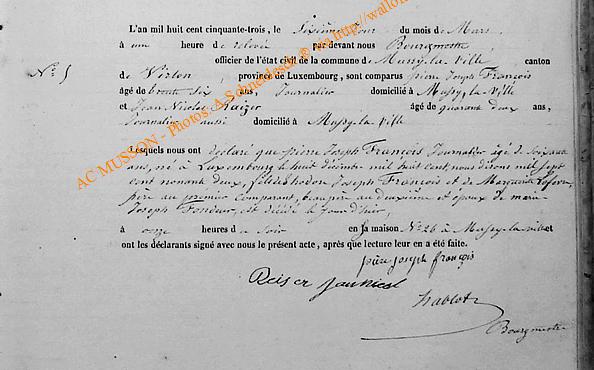 L'an mil huit cent cinquante-trois, le Sixième jour du mois de Mars
à une heure de relevée par devant nous Bourgmestre
officier de l'état civil de la commune de Mussy la Ville canton
N° 5
de Virton, province de Luxembourg, sont comparus pierre Joseph François
âgé de trente six ans, Journalier domicilié à Mussy-la-Ville
et Jean Nicolas Reizer âgé de quarante deux ans,
Journalier aussi domicilié à Mussy-la-Ville
Lesquels nous ont déclaré que pierre Joseph François Journalier âgé de soixante
ans, né à Luxembourg le huit décembre mil huit cent nous disons mil sept
cent nonante deux, fils de Joseph François et de Marguerite
père au premier comparant, beau père au deuxième et époux de marie
Joseph Fondeur, est décédé le jour d'hier,
à onze heures du soir en sa maison N° 26 à Mussy-la-ville et
ont les déclarants signé avec nous le présent acte, après que lecture leur en a été faite.
pière joseph françois
Reiser jean nicol
Hablot
Bourgmestre
AC MUSSON - Photos: A.Schneidesch @ via http://wallo